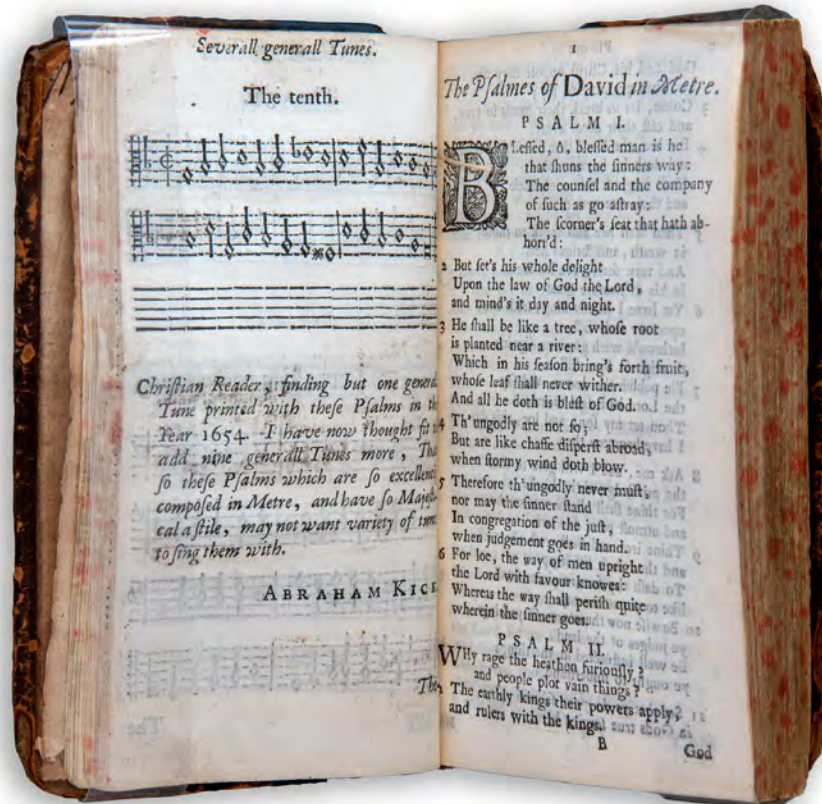 Severall generall Tunes.
The tenth.
Chriſtian Reader, finding but one general
Tune printed with theſe Pſalms in
Year 1654. I have now thought fit
add nine generall Tunes more,
ſo theſe Pſalms which are ſo
compoſed in Metre, and have ſo
cal a ſtile, may not want variety of
to ſing them with.
ABRAHAM
The
1
The Pſalmes of David in Metre.
PSALM I.
BLeſſed, ô, bleſſed man is he
that ſhuns the ſinners way:
The counſel and the company
of ſuch as go aſtray:
The ſcorner's ſeat that hath ab-
horr'd:
2 But ſet's his whole delight
Upon the law of God the Lord,
and mind's it day and night.
3 He ſhall be like a tree, whoſe root
is planted near a river:
Which in his ſeaſon bring's forth fruit,
whoſe leaf ſhall never wither.
And all he doth is bleſt of God.
4 Th'ungodly are not ſo;
But are like chaffe diſperſt abroad,
when ſtormy wind doth blow.
5 Therefore th'ungodly never muſt,
nor may the ſinner ſtand
In congregation of the juſt,
when judgement goes in hand.
6 For loe, the way of men upright
the Lord with favour knowes:
Whereas the way ſhall periſh quite
wherein the ſinner goes.
PSALM II.
WHy rage the heathen furiouſly?
and people plot vain things?
2 The earthly kings their powers apply,
and rulers with the kings.
B
God